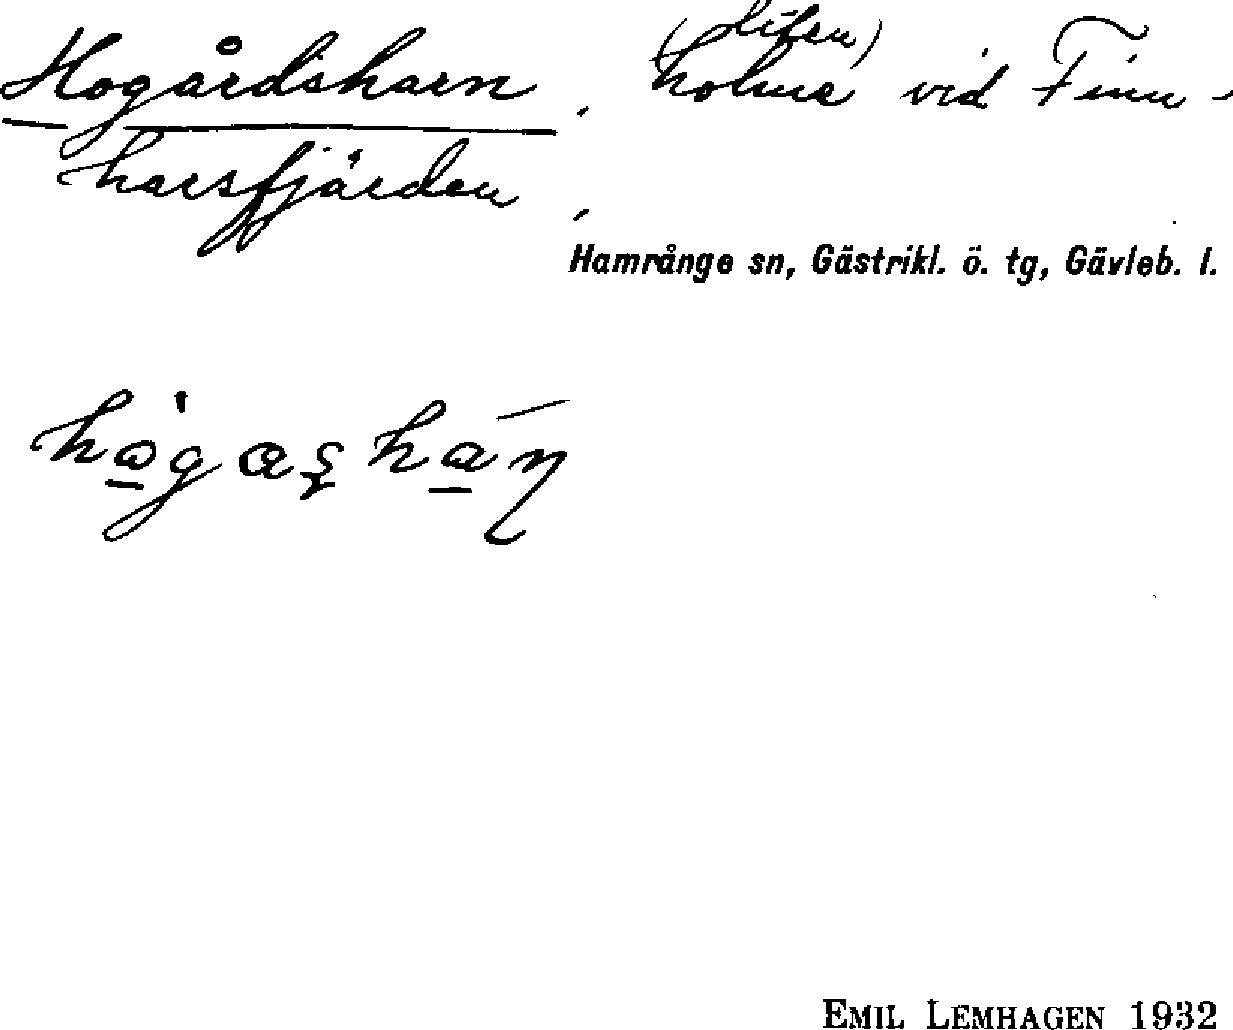 (liten)
Hogårdsharn, holme vid Finn-
harsfjärden,
Hamrånge sn, Gästrikl. ö. tg, Gävleb. l.
EMIL LEMHAGEN 1932